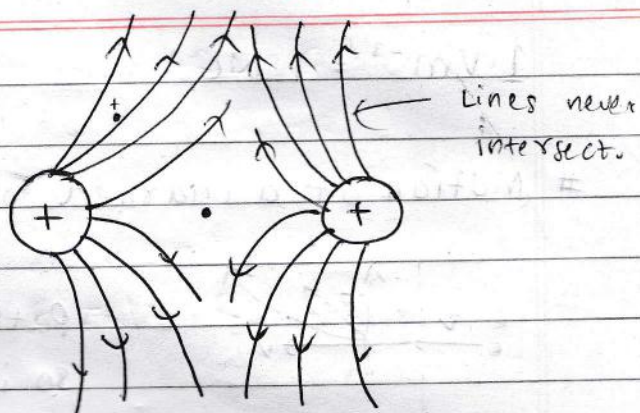 +
Lines never
intersect.
+
+